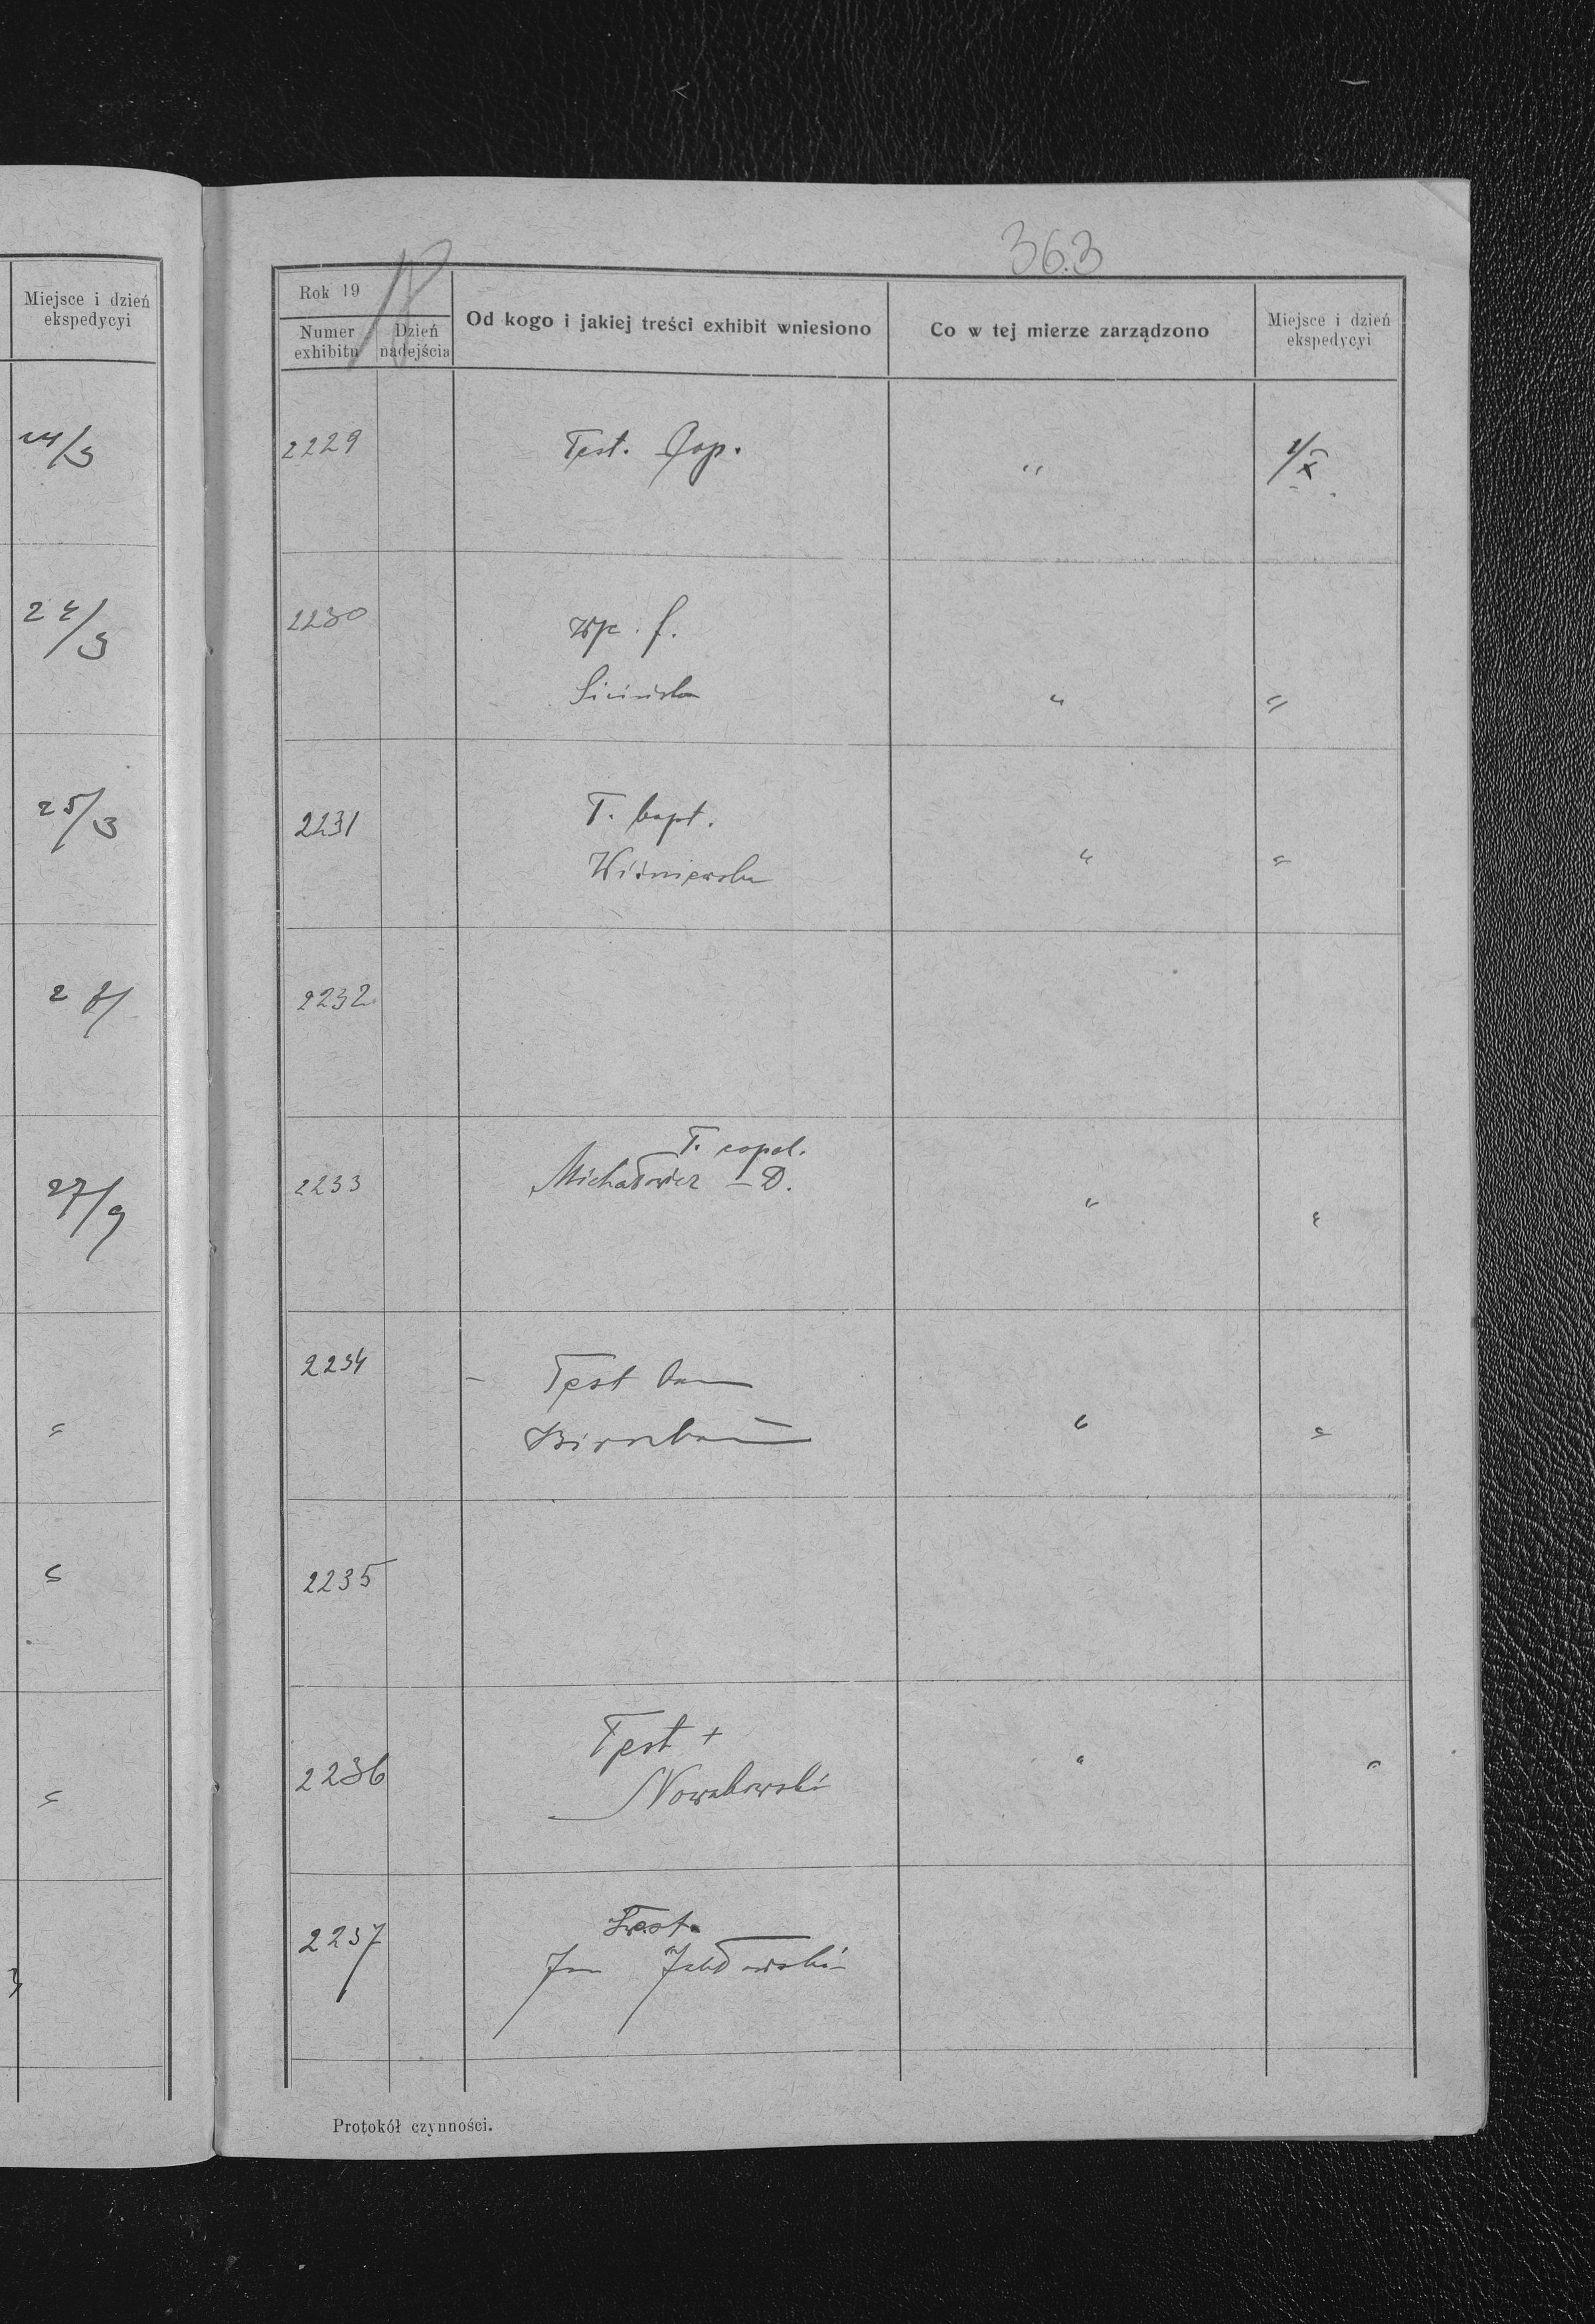 Miejsce i dzień
ekspedycyi
24/9
25/9
27/9
363
Rok 19
Numer
exhibitu
Dzień
nadejścia
Od kogo i jakiej treści exhibit wniesiono
Co w tej mierze zarządzono
Miejsce i dzień
ekspedycyi
2229 Test. " 1/X
2230
" "
2231 T. bapt.
Wiśniewska " "
2232
T. copul.
2233 Michałowicz – D. " "
2234 – Test
" "
2235
2236 Test + " "
Nowakowski
2237 Test.
Jan
Protokół czynności.